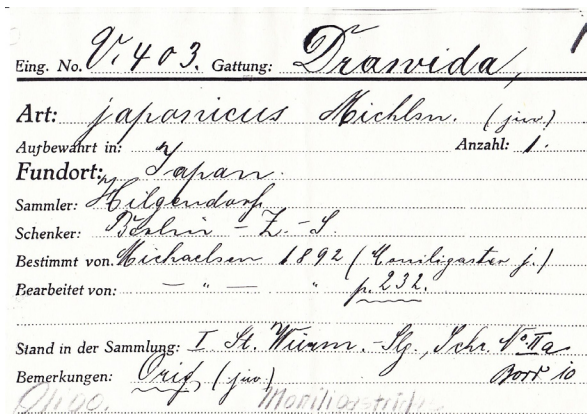 Eing. No. V. 403. Gattung: Drawida,
Art: japonicus Michlsn. (juv.)
Aufbewahrt in: Anzahl: 1.
Fundort: Japan.
Sammler: Hilgendorf
Schenker: Berlin - Z. - S.
Bestimmt von: Michaelsen 1892 (Moniligaster j.)
Bearbeitet von: — " — " p. 232.
Stand in der Sammlung: I St. Würm. - Slg., Schr. No IIa
Bemerkungen: Orig (juv.) Bord 10
Oligo. Moniligastridae